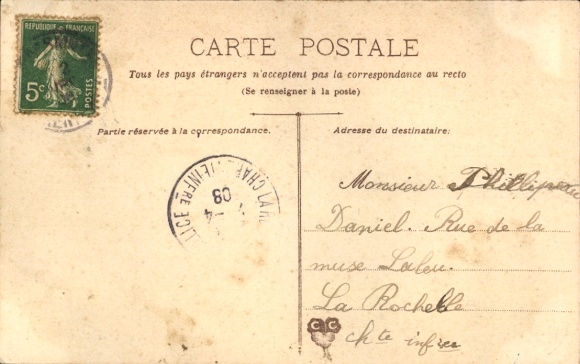 REPUBLIQUE FRANÇAISE
5c POSTES
CARTE POSTALE
Tous les pays étrangers n'acceptent pas la correspondance au recto
(Se renseigner à la poste)
Partie réservée à la correspondance.
Adresse du destinataire:
Monsieur
Daniel. Rue de la
muse
La Rochelle
chte infre
C C
08